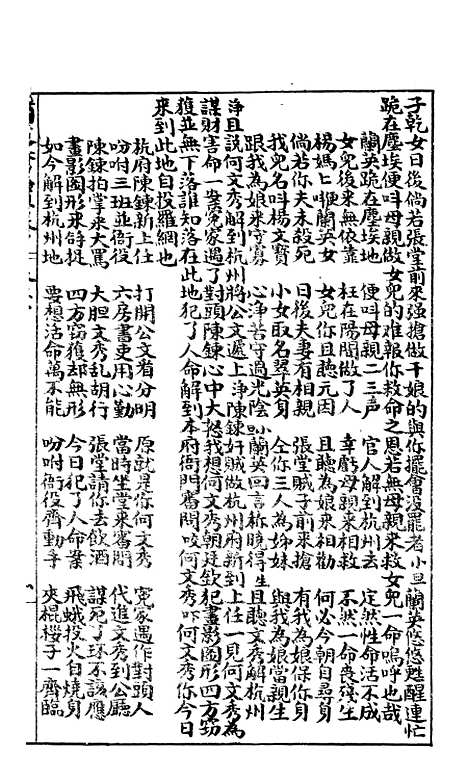 子乾女日後倘若張堂前來強搶做干娘的與你擺會沒罷者小旦蘭英悠悠甦醒連忙
跪在塵埃便叫母親做女兒的难報你救命之恩若無母親來救女兒一命嗚呼也哉
蘭英跪在塵埃地　便叫母親二三声　官人解到杭州去　定然性命活不成
女兒後來無依靠　枉在陽間做了人　幸虧母親來相救　不然一命喪殘生
楊媽匕叫蘭英女　女兒你且聽元因　且聽為娘來相勸　何必今朝自尋身
倘若你夫未殺死　日後夫妻有相親　張堂賊子前來搶　有我為娘保你身
我兒名叫楊文寶　小女取名翠英身　仝你三人為姊妹　與我為娘當親生
跟我為娘來守寡　心浄苦守過光陰　小蘭英回言称曉得　且聽文秀解杭州
浄且說何文秀解到杭州將公文遞上浄陳鍊奸賊做杭州府新到上任一見何文秀為
謀財害命一案冤家遇了對頭陳鍊心中大怒我想何文秀朝廷欽犯畫影圖形四方窃
獲並無下落誰知落在此地犯了人命解到本府衙門審問咬何文秀吓何文秀你今日
來到此地自投羅網也
杭府陳鍊新上任　打開公文看分明　原就是你何文秀　冤家遇作對頭人
吩咐三班並衙役　六房書吏用心勤　當時坐堂來審問　代進文秀到公廳
陳鍊拍堂來大罵　大胆文秀乱胡行　張堂請你去飲酒　謀死了环不該應
畫影圖形來時捉　四方窃獲却無形　今日犯了人命案　飛蛾投火自燒身
如今解到杭州地　要想活命萬不能　吩咐衙役齊動手　夾棍桚子一齊臨